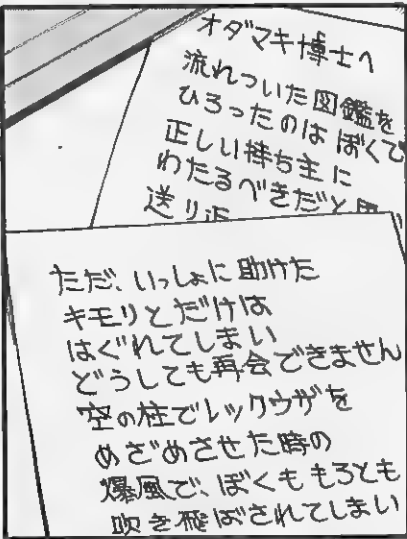 オダマキ博士へ
流れついた図鑑を
ひろったのは ぼくで
正しい持ち主に
わたるべきだと
送り
ただ、いっしょに助けた
キモリとだけは
はぐれてしまい
どうしても再会できません
空の柱でレックウザを
めざめさせた時の
爆風で、ぼくももろとも
吹き飛ばされてしまい